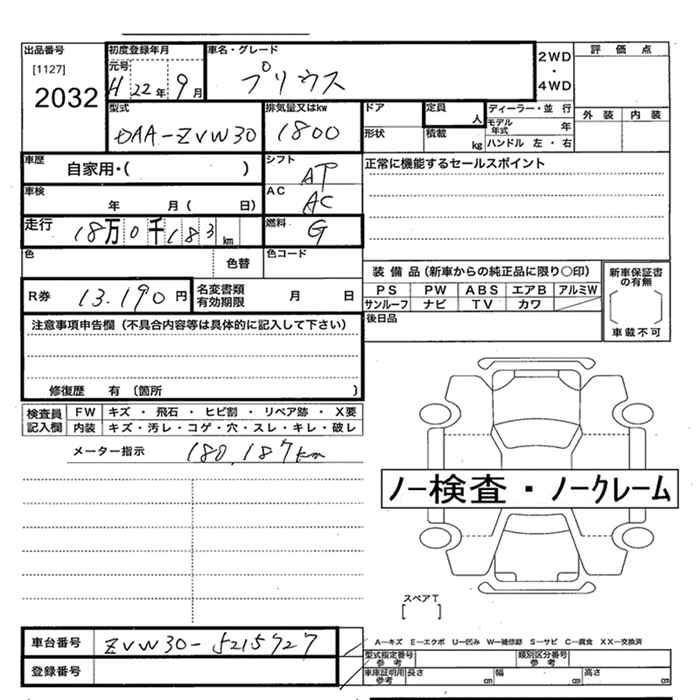 出品番号
[1127]
2032
初度登録年月
元号
H 22年 9月
車名・グレード
プリウス
2WD
・
4WD
評価点
外装 内装
型式
DAA-ZVW30
排気量又はkw
1800
ドア
形状
定員
人
積載
kg
ディーラー・並行
モデル年式 年
ハンドル 左・右
車歴
自家用・( )
シフト
AT
正常に機能するセールスポイント
車検
年 月( 日)
AC
AC
走行
18万0千183km
燃料
G
色
色替
色コード
装備品(新車からの純正品に限り○印)
PS PW ABS エアB アルミW
サンルーフ ナビ TV カワ
新車保証書の有無
車載不可
R券 13.190円
名変書類有効期限 月 日
後日品
注意事項申告欄(不具合内容等は具体的に記入して下さい)
修復歴 有〔箇所 〕
検査員記入欄
FW キズ・飛石・ヒビ割・リペア跡・X要
内装 キズ・汚レ・コゲ・穴・スレ・キレ・破レ
メーター指示 180,187km
ノー検査・ノークレーム
スペアT
[ ]
車台番号 ZVW30-5215727
登録番号
A-キズ E-エクボ U-凹み W-補修跡 S-サビ C-腐食 XX-交換済
型式指定番号参考
類別区分番号参考
車庫証明用参考 長さ cm 幅 cm 高さ cm